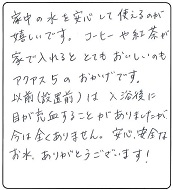 家中の水を安心して使えるのが
嬉しいです。コーヒーや紅茶が
家で入れるととてもおいしいのも
アクアス5のおかげです。
以前(設置前)は入浴後に
目が充血することがありましたが
今は全くありません。安心、安全な
お水、ありがとうございます!